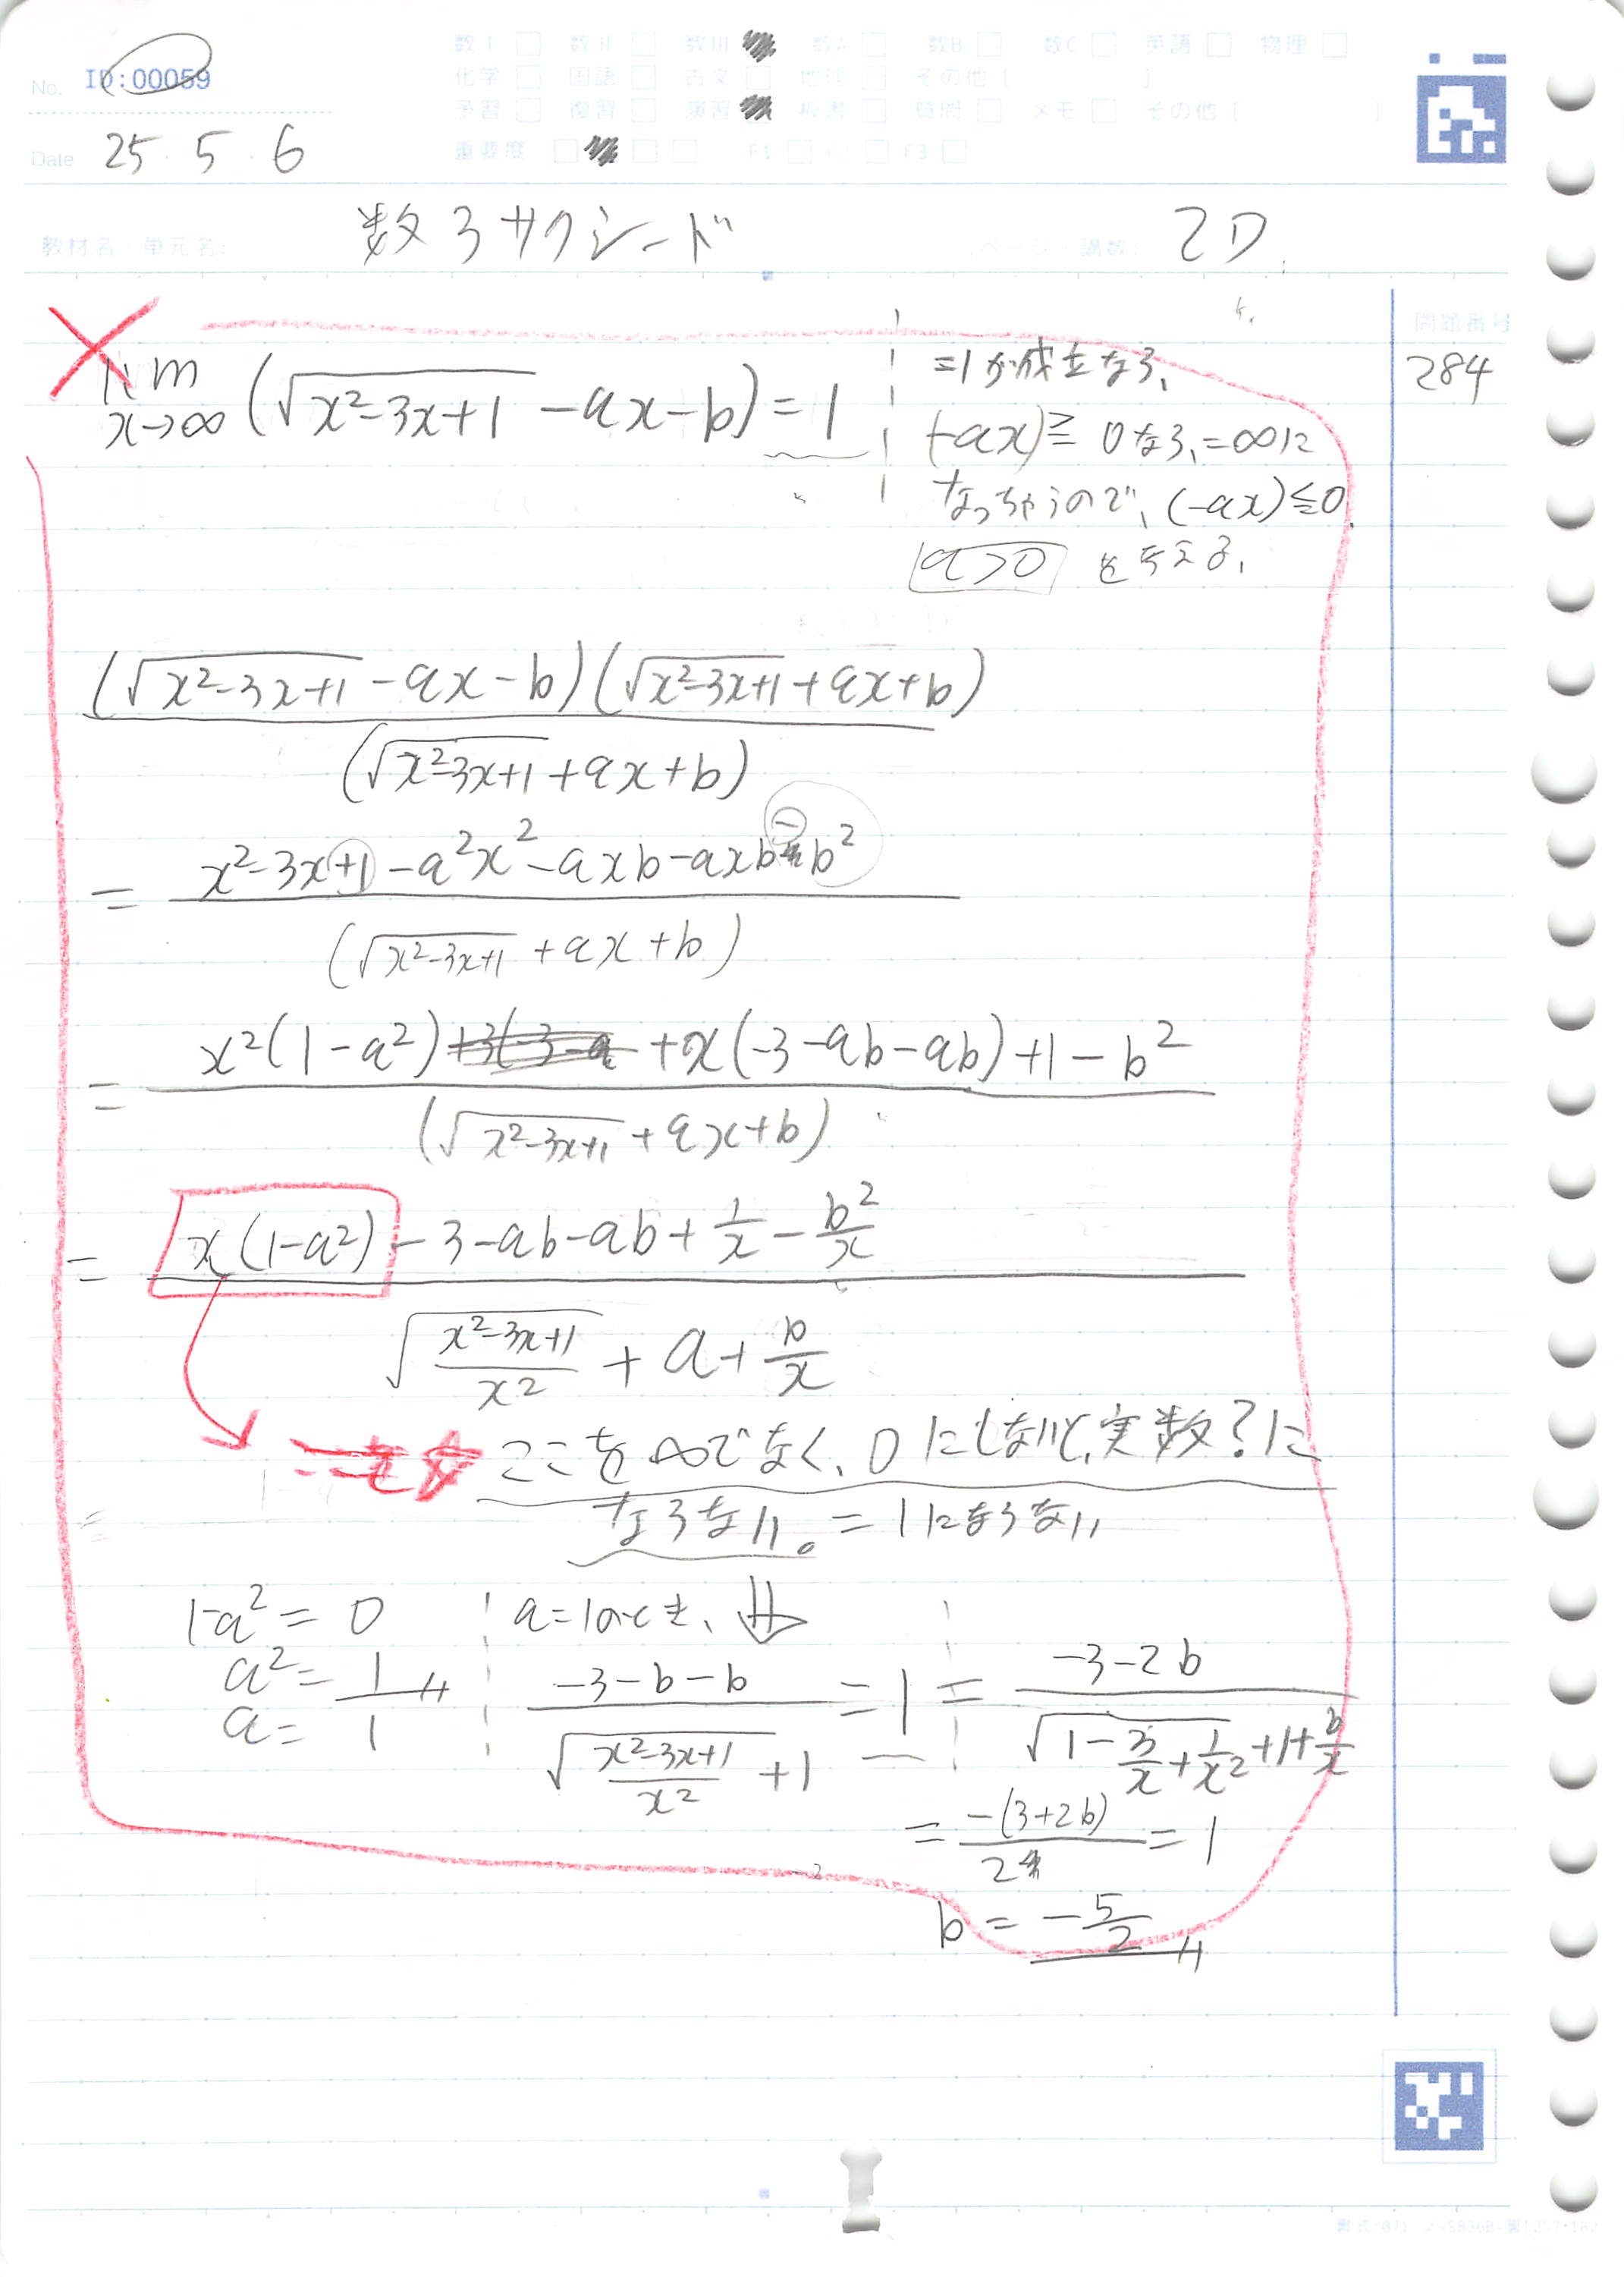 No. ID:00059
数I 数II 数III 数A 数B 数C 英語 物理
化学 国語 古文 地理 その他 [ ]
予習 復習 演習 質問 メモ その他 [ ]
Date 25 5 6
重要度 F1 F3
教材名 単元名: 数3サクシード ページ 講数: 20
問題番号
284
lim x→∞ (√(x²-3x+1) -ax-b) = 1
=1が成立なら、
(-ax)≧0なら、=∞に
なっちゃうので、(-ax)≦0、
a>0 を考える、
(√(x²-3x+1) -ax-b)(√(x²-3x+1) +ax+b)
(√(x²-3x+1) +ax+b)
= x²-3x+1-a²x²-axb-axb-b²
(√(x²-3x+1) +ax+b)
= x²(1-a²) +x(-3-ab-ab)+1-b²
(√(x²-3x+1) +ax+b)
= x(1-a²)-3-ab-ab+1/x-b²/x
√((x²-3x+1)/x²) + a + b/x
ここを∞でなく、0にしないと、実数?に
ならない。=1にならない
1-a²=0
a²=1
a=1
a=1のとき、⇓
(-3-b-b)/(√((x²-3x+1)/x²)+1) = 1
= (-3-2b)/(√(1-3/x+1/x²)+1+b/x)
= -(3+2b)/2 = 1
b = -5/2